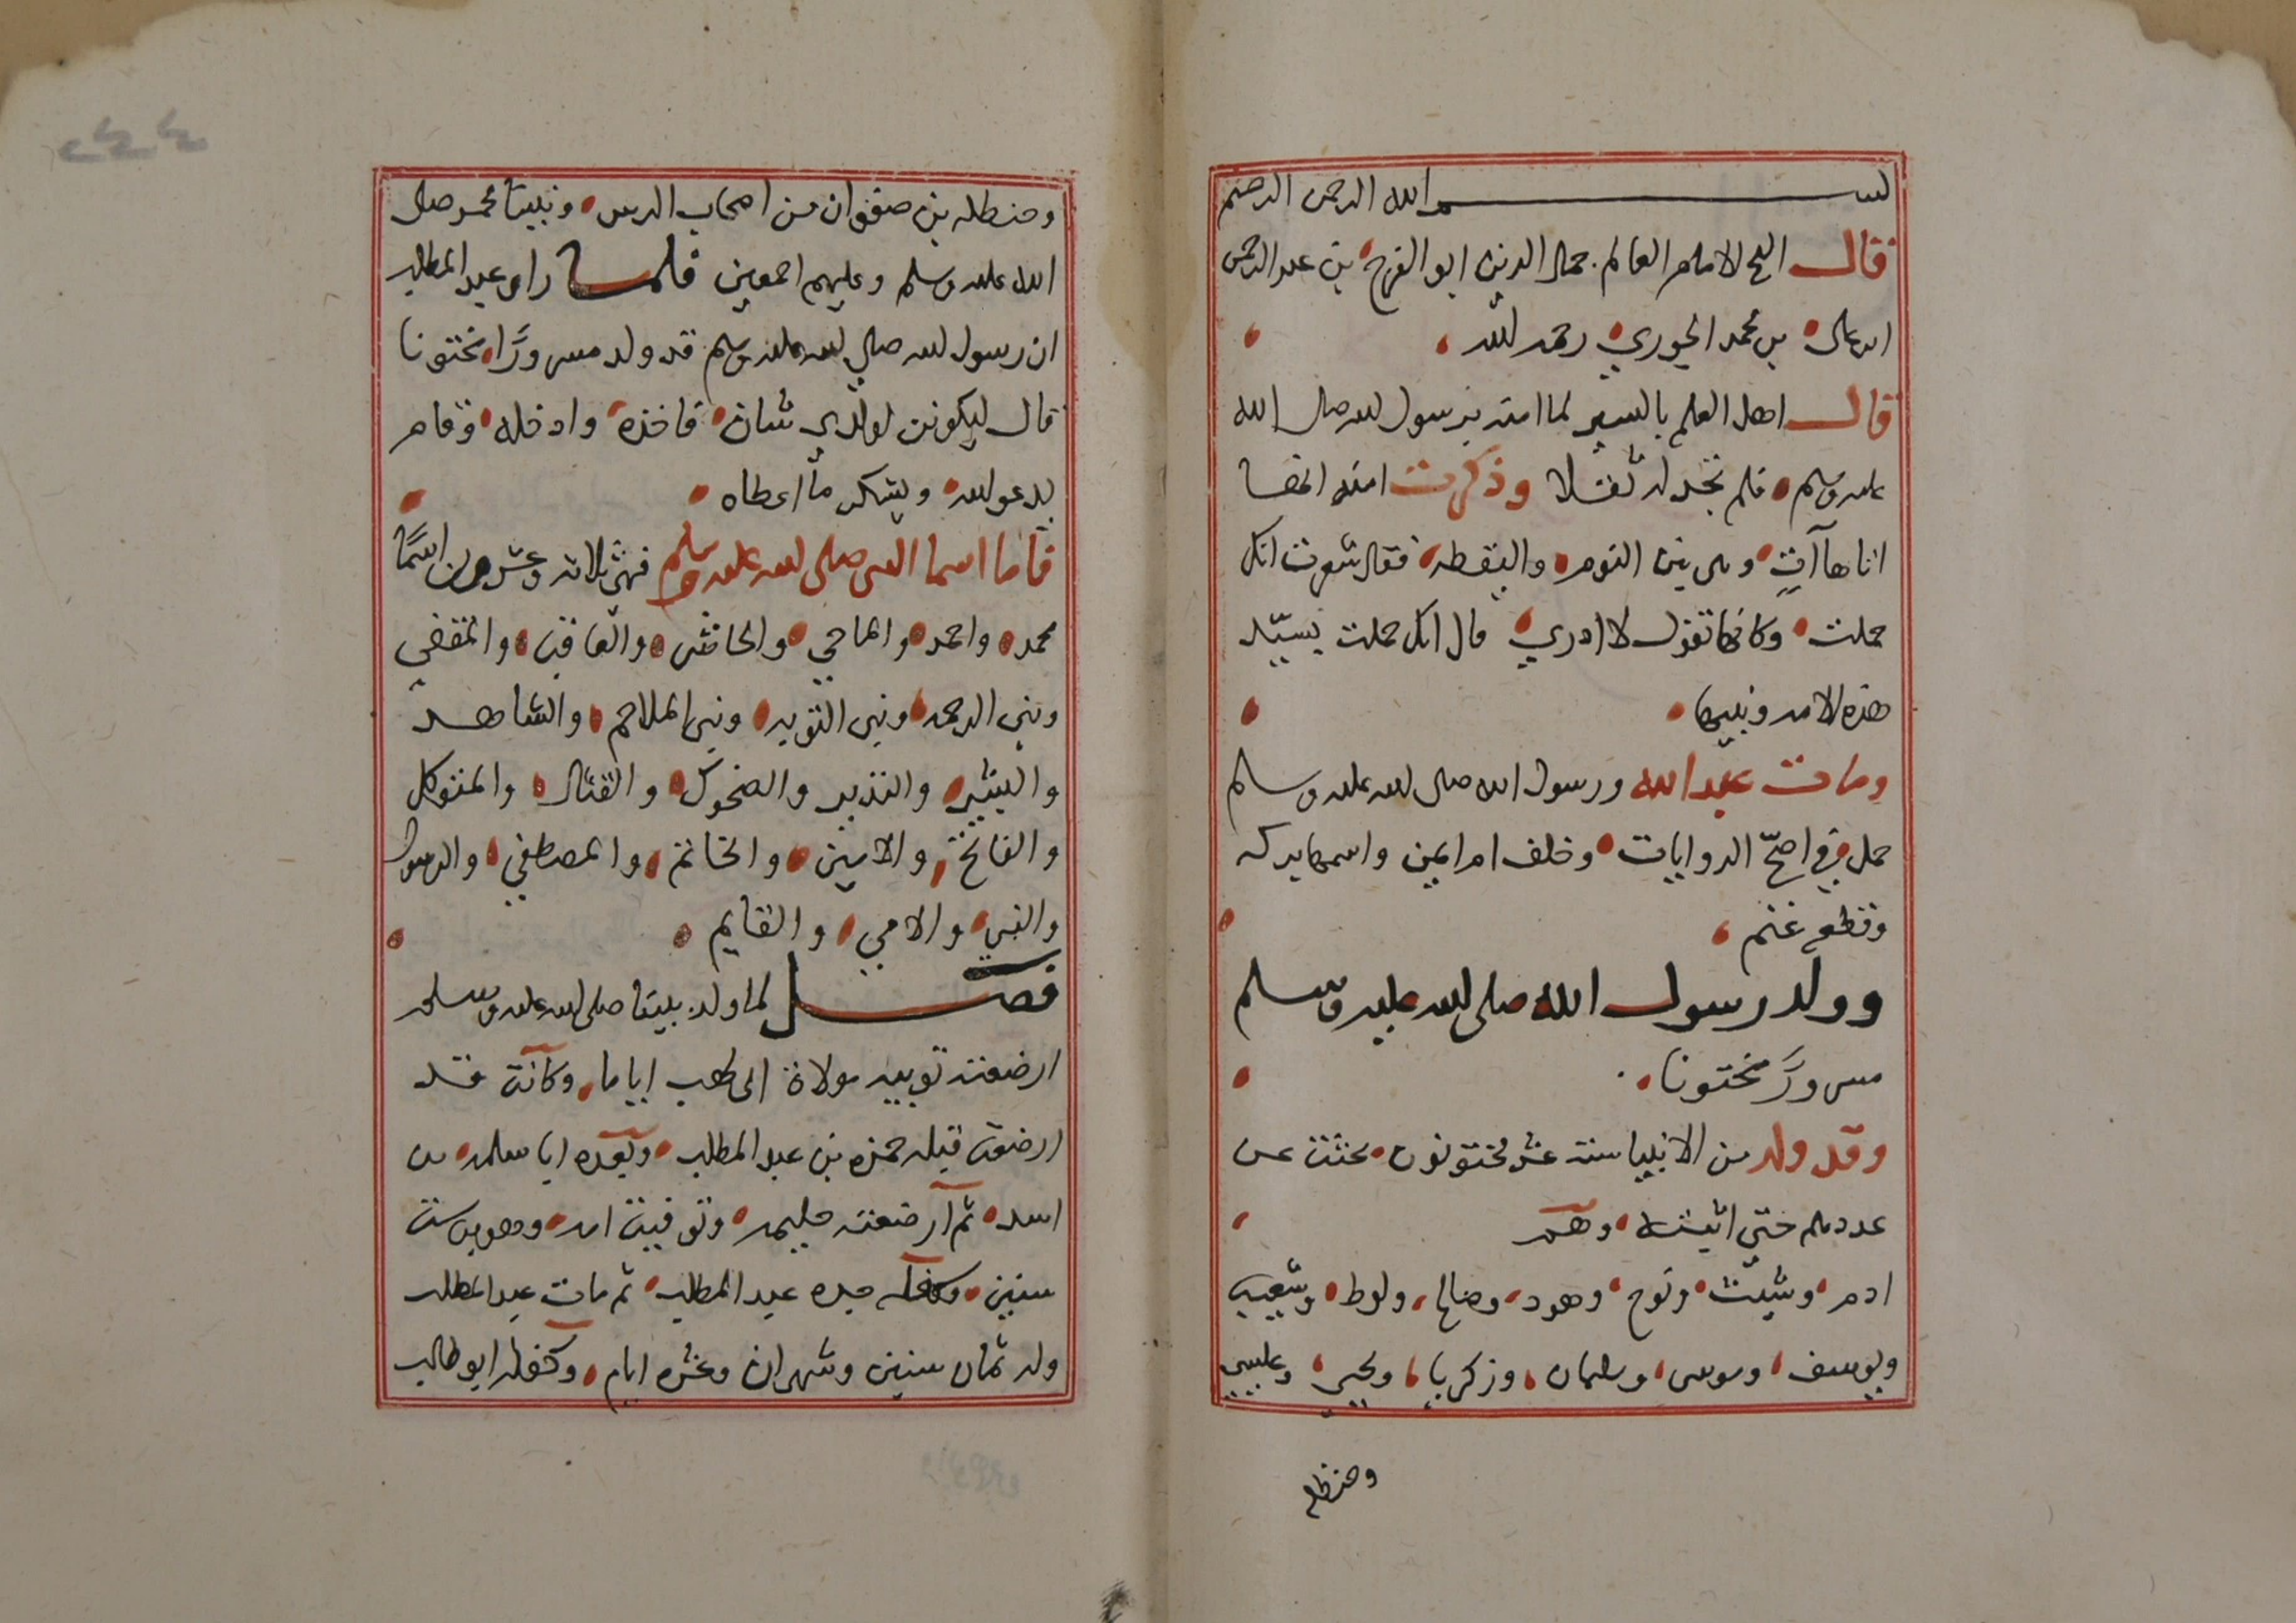 بسم الله الرحمن الرحيم
قال الشيخ الامام العالم جمال الدين ابو الفرج بن عبد الرحمن
ابن علي بن محمد الجوزي رحمه الله
قال اهل العلم بالسير لما امنه برسول الله صلى الله
عليه وسلم فلم تجد له ثقلا وذكرت امنه انها
اتاها آتٍ وهي بين النوم واليقظه فقال شعرت انك
حملت وكانها تقول لا ادري قال انك حملت بسيّد
هذه الامه ونبيها
ومات عبد الله ورسول الله صلى الله عليه وسلم
حمل في اصحّ الروايات وخلف ام ايمن واسمها بركه
وقطع غنم
وولد رسول الله صلى الله عليه وسلم
مسرورًا مختونا
وقد ولد من الانبيا ستة عشر مختونون بحثت عن
عددهم حتى اثبته وهم
ادم وشيث ونوح وهود وصالح ولوط وشعيب
ويوسف وموسى وسليمان وزكريا ويحيى وعيسى
وحنظله
وحنظله بن صفوان من اصحاب الرس ونبينا محمد صلى
الله عليه وسلم وعليهم اجمعين فلما راى عبد المطلب
ان رسول الله صلي الله عليه وسلم قد ولد مسرورًا مختونا
قال ليكونن لولدي شان فاخذه وادخله وقام
يدعو الله ويشكر ما اعطاه
فاما اسما النبى صلى الله عليه وسلم فهى ثلاثه وعشرون اسمًا
محمد واحمد والماحي والحاشر والعاقب والمقفي
ونبي الرحمه ونبي التوبه ونبي الملاحم والشاهد
والبشير والنذير والضحوك والقتال والمتوكل
والفاتح والامين والخاتم والمصطفي والرسول
والنبي والامي والقايم
فصل لما ولد نبينا صلى الله عليه وسلم
ارضعته ثويبه مولاة ابى لهب اياما وكانت قد
ارضعت قبله حمزه بن عبد المطلب وبعده ابا سلمه بن
اسد ثم ارضعته حليمه وتوفيت امه وهو بن ست
سنين وكفله جده عبد المطلب ثم مات عبد المطلب
وله ثمان سنين وشهران وعشره ايام وكفله ابو طالب